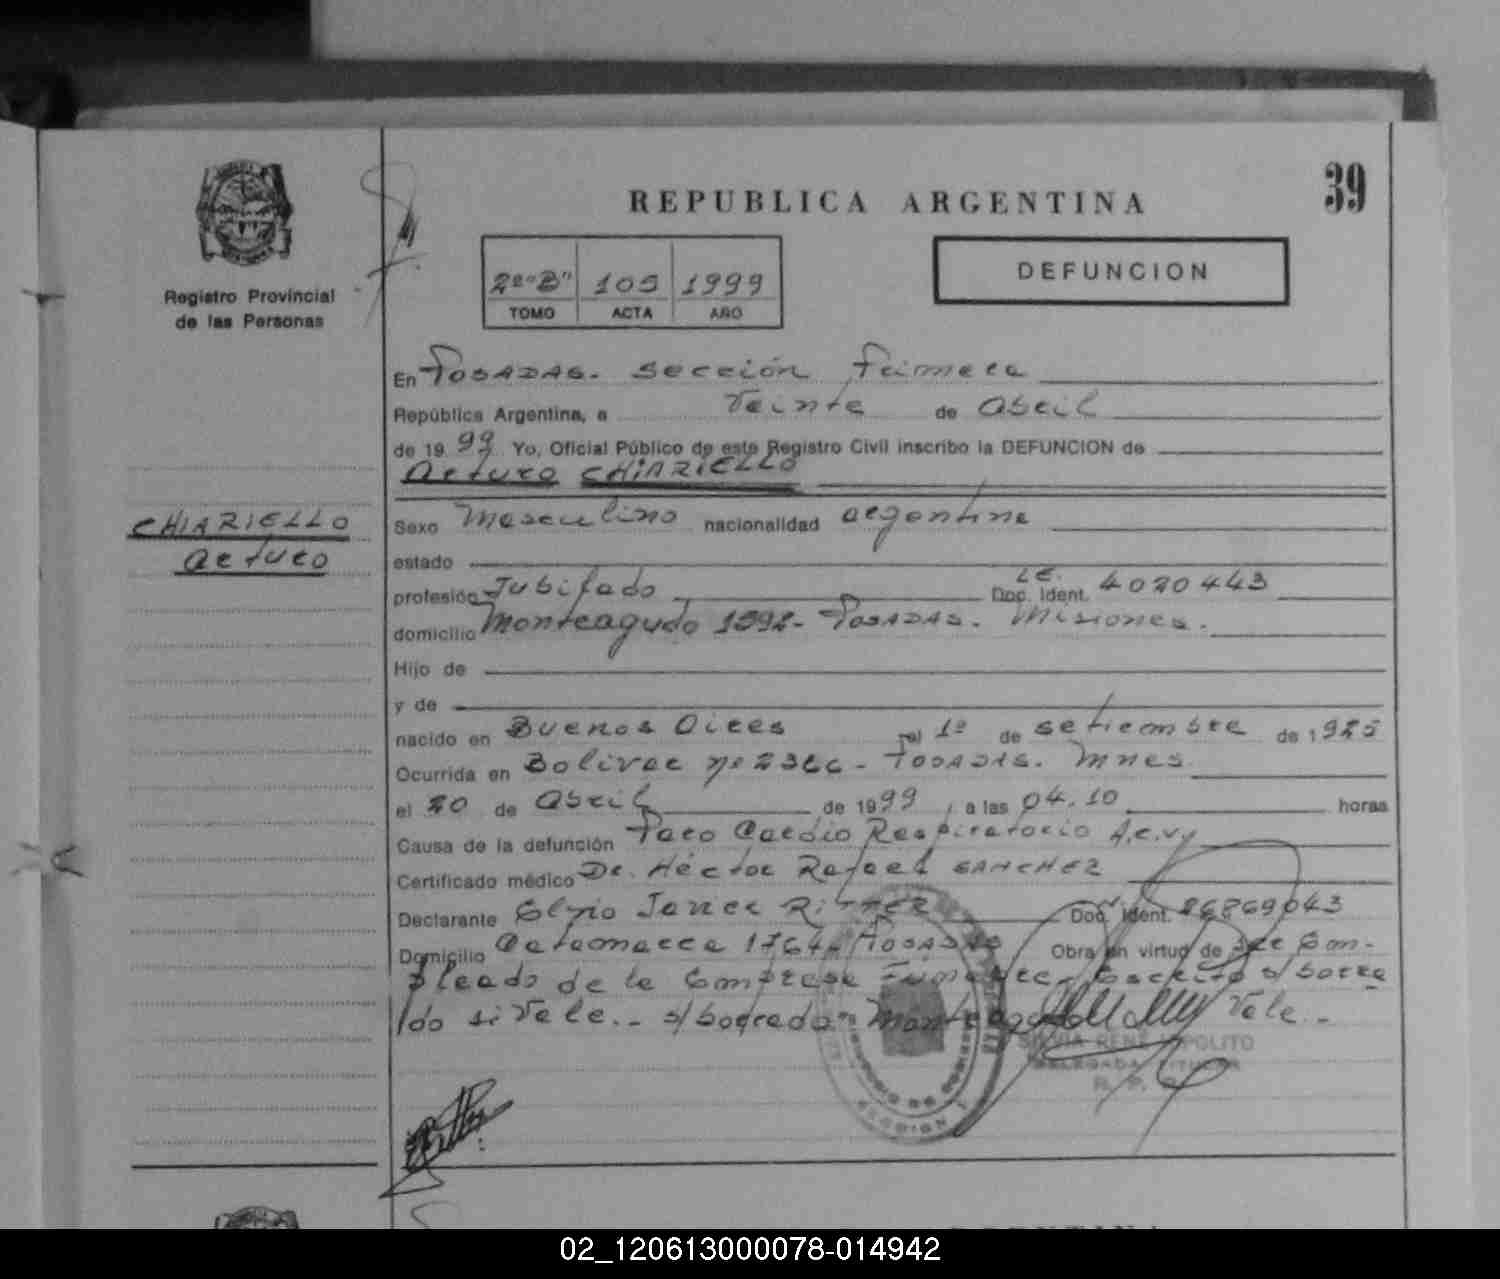 39
REPUBLICA ARGENTINA
Registro Provincial
de las Personas
2º"B" 105 1999
TOMO ACTA AÑO
DEFUNCION
En Posadas. Sección Primera
República Argentina, a Veinte de Abril
de 19 99 Yo, Oficial Público de este Registro Civil inscribo la DEFUNCION de
Arturo CHIARIELLO
CHIARIELLO
Arturo
Sexo Masculino nacionalidad argentina
estado
profesión Jubilado Doc. Ident. L.E. 4020443
domicilio Monteagudo 1592- Posadas. Misiones.
Hijo de
y de
nacido en Buenos Aires el 1º de setiembre de 1925
Ocurrida en Bolivar nº 2366- Posadas. Mnes.
el 20 de Abril de 1999, a las 04.10 horas
Causa de la defunción Paro Cardio Respiratorio A.c.v.
Certificado médico Dr. Héctor Rafael SANCHEZ
Declarante Elvio Javier Doc. Ident. 26269043
Domicilio Catamarca 1764 Posadas Obra en virtud de ser Em-
pleado de la Empresa Funebre. Escrito s/borra
do si Vale.- s/borrado "Monteagudo" Vale.-
SILVIA RENE HIPOLITO
DELEGADA TITULAR
R. P.
02_120613000078-014942